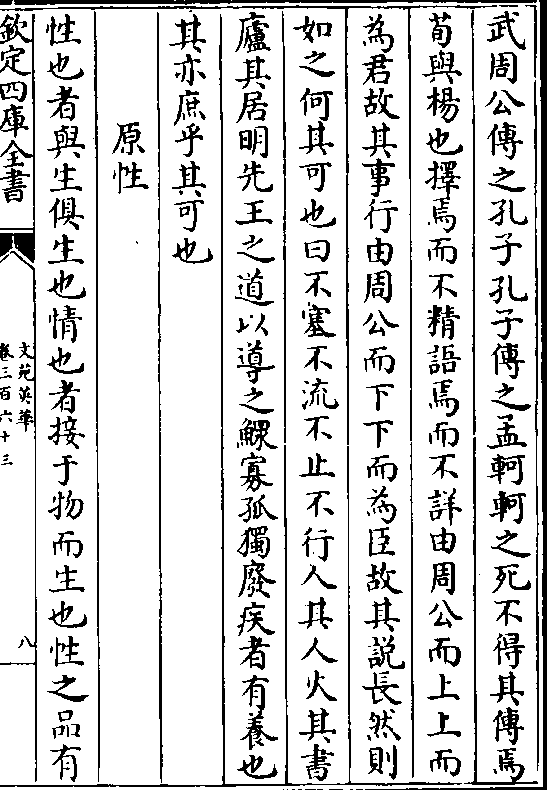 武周公傳之孔子孔子傳之孟軻軻之死不得其傳焉
荀與楊也擇焉而不精語焉而不詳由周公而上上而
為君故其事行由周公而下下而為臣故其說長然則
如之何其可也曰不塞不流不止不行人其人火其書
廬其居明先王之道以導之鰥寡孤獨廢疾者有養也
其亦庶乎其可也
原性
性也者與生俱生也情也者接于物而生也性之品有
欽定四庫全書
文苑英華
卷三百六十三
八